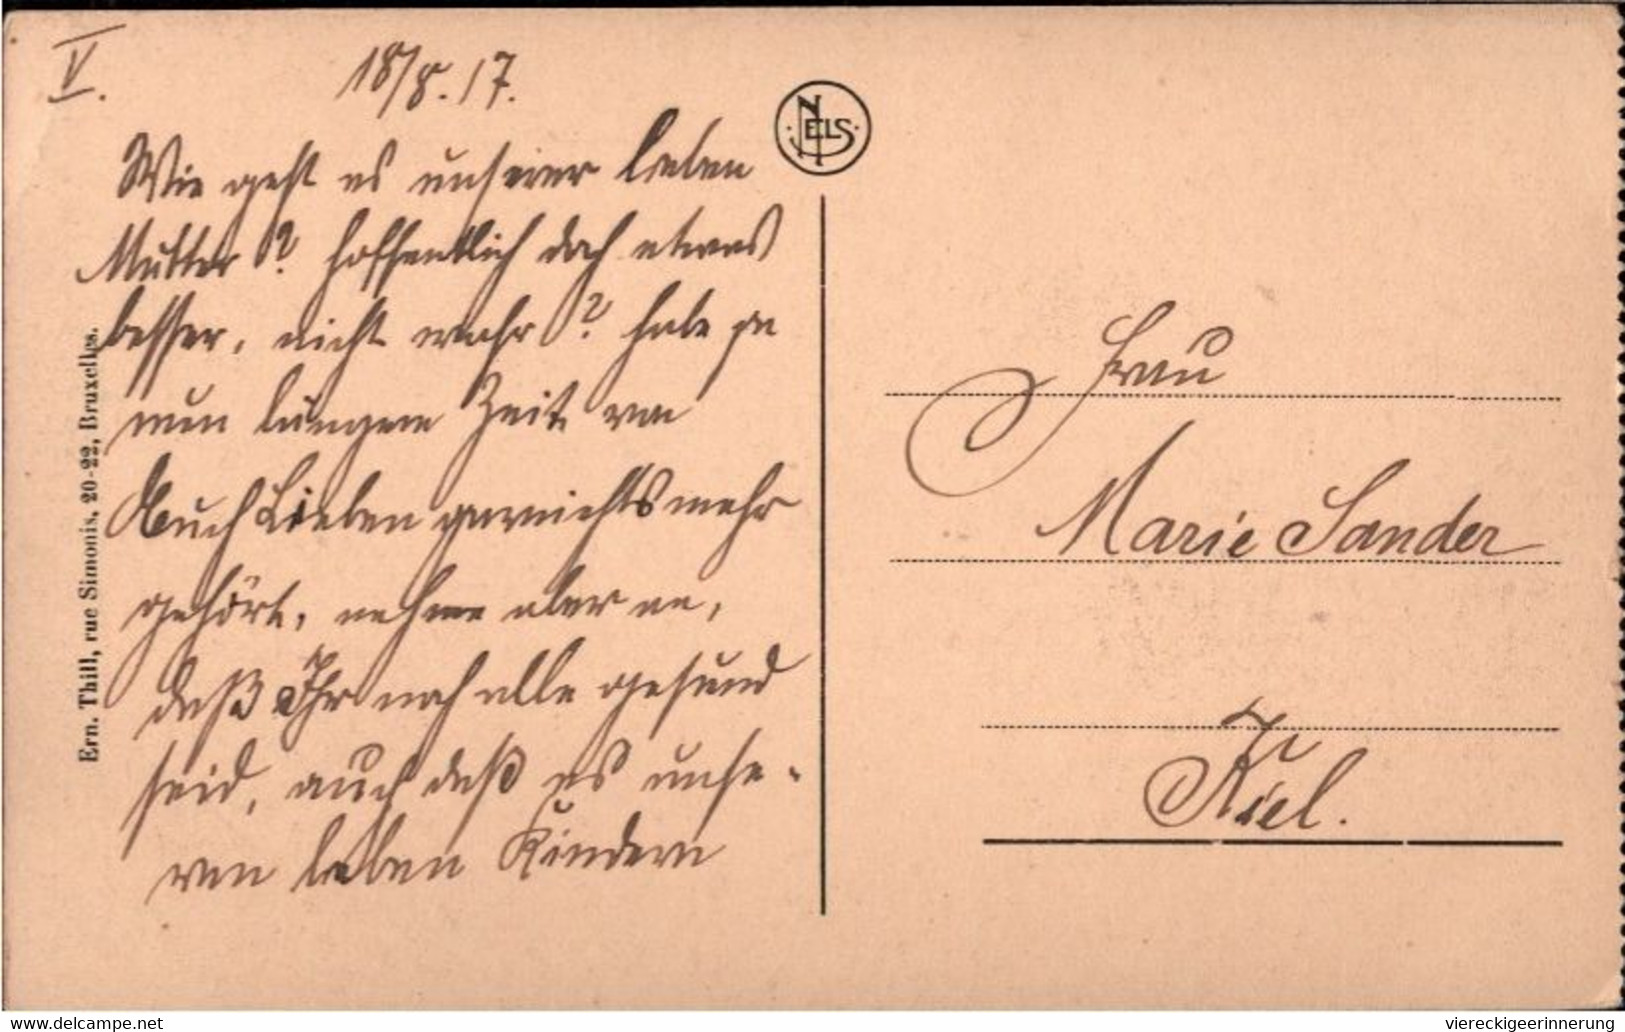 V.
18/8.17.
Wie geht es unserer lieben
Mutter? hoffentlich doch etwas
besser, nicht wahr? habe ja
nun längere Zeit von
Euch Lieben garnichts mehr
gehört, nehme aber an,
daß Ihr noch alle gesund
seid, auch daß es unse-
ren lieben Kindern
Ern. Thill, rue Simonis, 20-22, Bruxelles.
NELS
Frau
Marie Sander
Kiel.
www.delcampe.net
viereckigeerinnerung